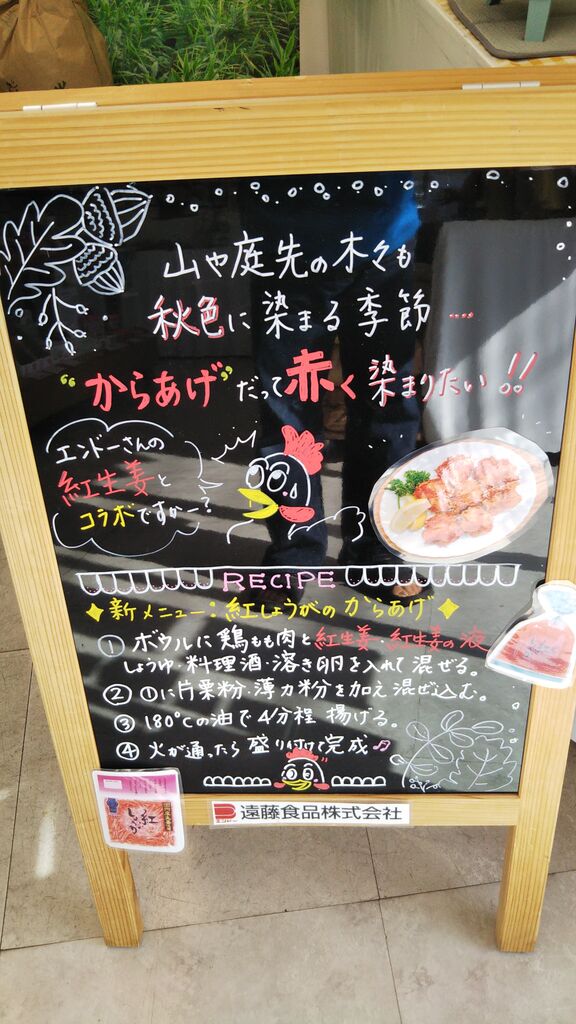 山や庭先の木々も
秋色に染まる季節…
"からあげ"だって赤く染まりたい!!
エンドーさんの
紅生姜と
コラボですかー?
RECIPE
新メニュー:紅しょうがのからあげ
① ボウルに鶏もも肉と紅生姜・紅生姜の液
しょうゆ・料理酒・溶き卵を入れて混ぜる。
② ①に片栗粉・薄力粉を加え混ぜ込む。
③ 180℃の油で4分程揚げる。
④ 火が通ったら盛り付けて完成♫
遠藤食品株式会社
紅しょうが